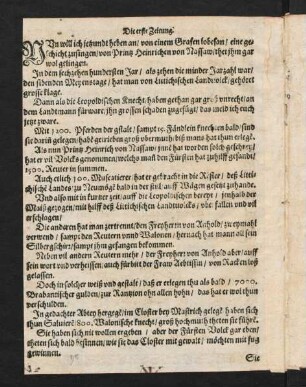 Die erste Zeitung.
NUn will ich jetzundt heben an/ von einem Grafen lobesan/ eine ge-
schicht zusingen/ von Prinz Heinrich von Nassaw/
wol gelingen.
In dem sechzehen hundersten Jar/ als zehen die minder Jarzahl war/
den sibenden Meyenstage/ hat man von Lüttichischen Landvolck/ gehöret
grosse klage.
Dann als die Leopoldischen Knecht/ haben gethan gar groß unrecht/ am
dem Landtmann fürwar/ ihn grossen schaden zugefügt/ das meld ich euch
jetzt zware.
Mit 1200. Pferden der gstalt/ sampt 15. Fändlein knechten bald/ sind
sie darein gelegen/ habt getrieben groß ubermuth/ diß mans hat thun erlegt.
Als nun Prinz Heinrich von Nassaw jund hat worden solch gschrey/
hat er vil Volcks genommen/ welchs man den Fürsten hat zuhilff gesandt/
1500. Reuter in summen.
Auch etlich 300. Muscatierer/ hat er gebracht in die Rifier/ deß Lüttti-
chischen Landes/ zu Neumögt bald in der still/ auff Wägen gesetzt zuhande.
Und also mit in kurtzer zeit/ auff die Leopoldischen bereyt/ jenshalb der
Maß gezogen/ mit hilff deß Lüttichischen Landtvolcks/ uberfallen und vil
erschlagen/
Die anderen hat man zertrennt/ den Freyherrn von Anhold/ zweymahl
verwend/ sampt den Reutern unnd Walonen/ hernach hat mann all sein
Silbergschirr/ sampt ihm gefangen bekommen.
Neben vil andern Reutern mehr/ der Freyherr von Anhold aber/ auff
sein wort und verheissen/ auch fürbit der Fraw Aebtissin/ von Racken loß
gelassen.
Doch in solcher weiß und gestalt/ daß er erlegen thu als bald/ 7000.
Brabannischer gulden/ zur Rantzion ohn allen hohn/ das hat er wol thun
verschulden.
In gedachter Abtey hergegt/ im Closter bey Mastrich gelegt/ haben sich
thun Salviert/ 800. Walonische knecht/ groß hochmuth theten sie führt.
Sie haben sich nit wollen ergeben/ aber der Fürsten Volck gar eben/
theten sich bald besinnen/ wie sie das Closter mit gewalt/ möchten mit fug
gewinnen.
Sie